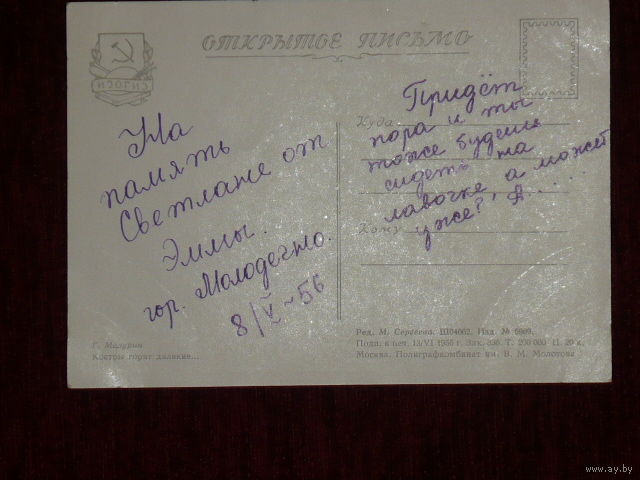 ОТКРЫТОЕ ПИСЬМО
ИЗОГИЗ
На
память
Светлане от
Эммы.
гор. Молодечно.
8/V-56
Придёт
Куда
пора и ты
тоже будешь
сидеть на
лавочке а может
Кому
уже?!
Г. Мазурин
Костры горят далекие...
Ред. М. Сергеева. Ш04662. Изд. №
Подп. к печ. 13/VI 1955 г. Зак. Т. 200 000 Ц. 20 к.
Москва. Полиграфкомбинат им. В. М. Молотова
www.ay.by